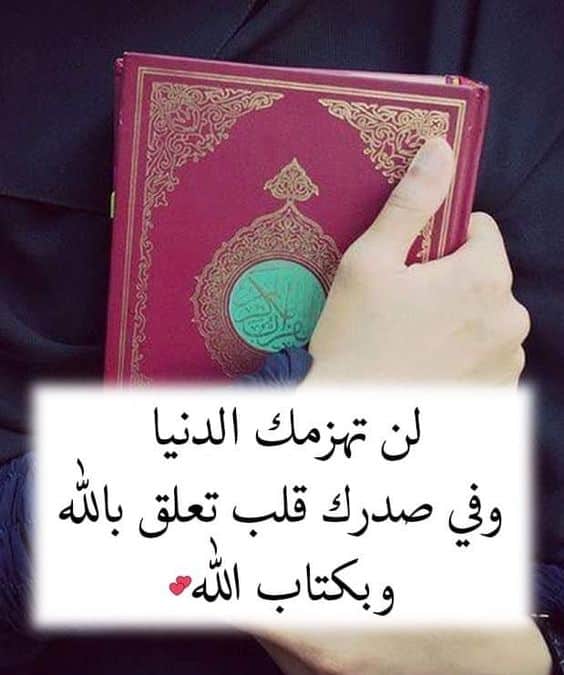 لن تهزمك الدنيا
وفي صدرك قلب تعلق بالله
وبكتاب الله💕